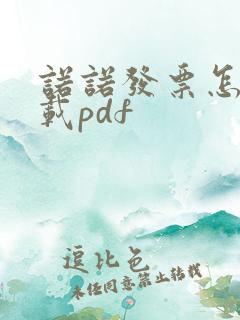 諾諾發票怎
載pdf
逗比色
未任同意禁止转载